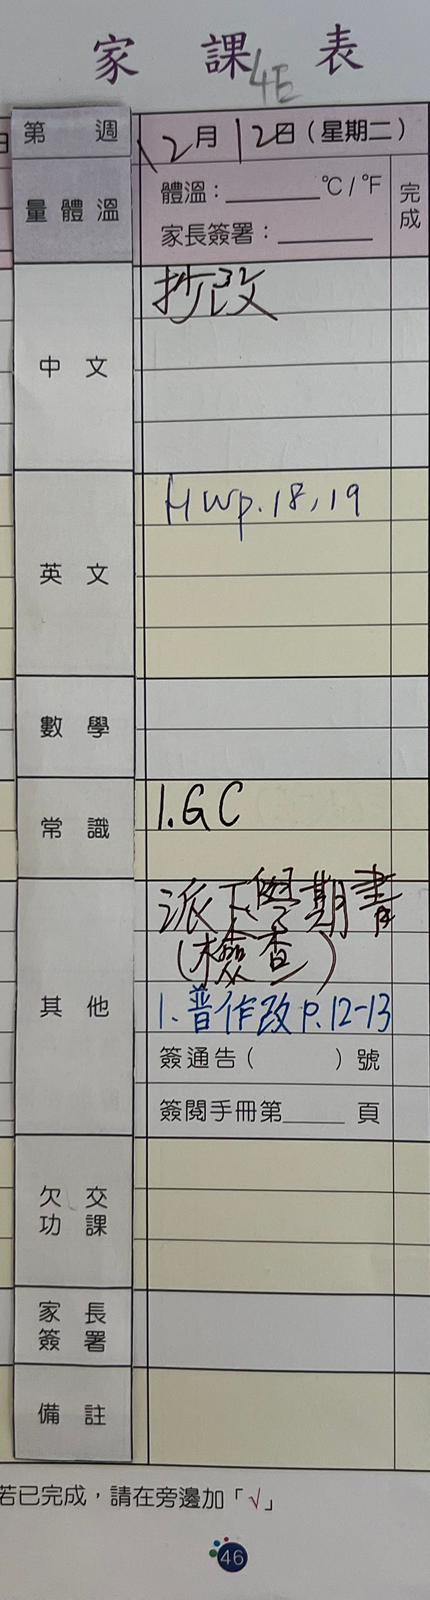 家課表
4E
第 週
12月12日(星期二)
量體溫
體溫:______°C/°F
家長簽署:______
完成
中文
抄改
英文
HWp.18,19
數學
常識
1.GC
其他
派下學期書
(檢查)
1.普作改p.12-13
簽通告( )號
簽閱手冊第____頁
欠交
功課
家長
簽署
備註
若已完成,請在旁邊加「√」
46